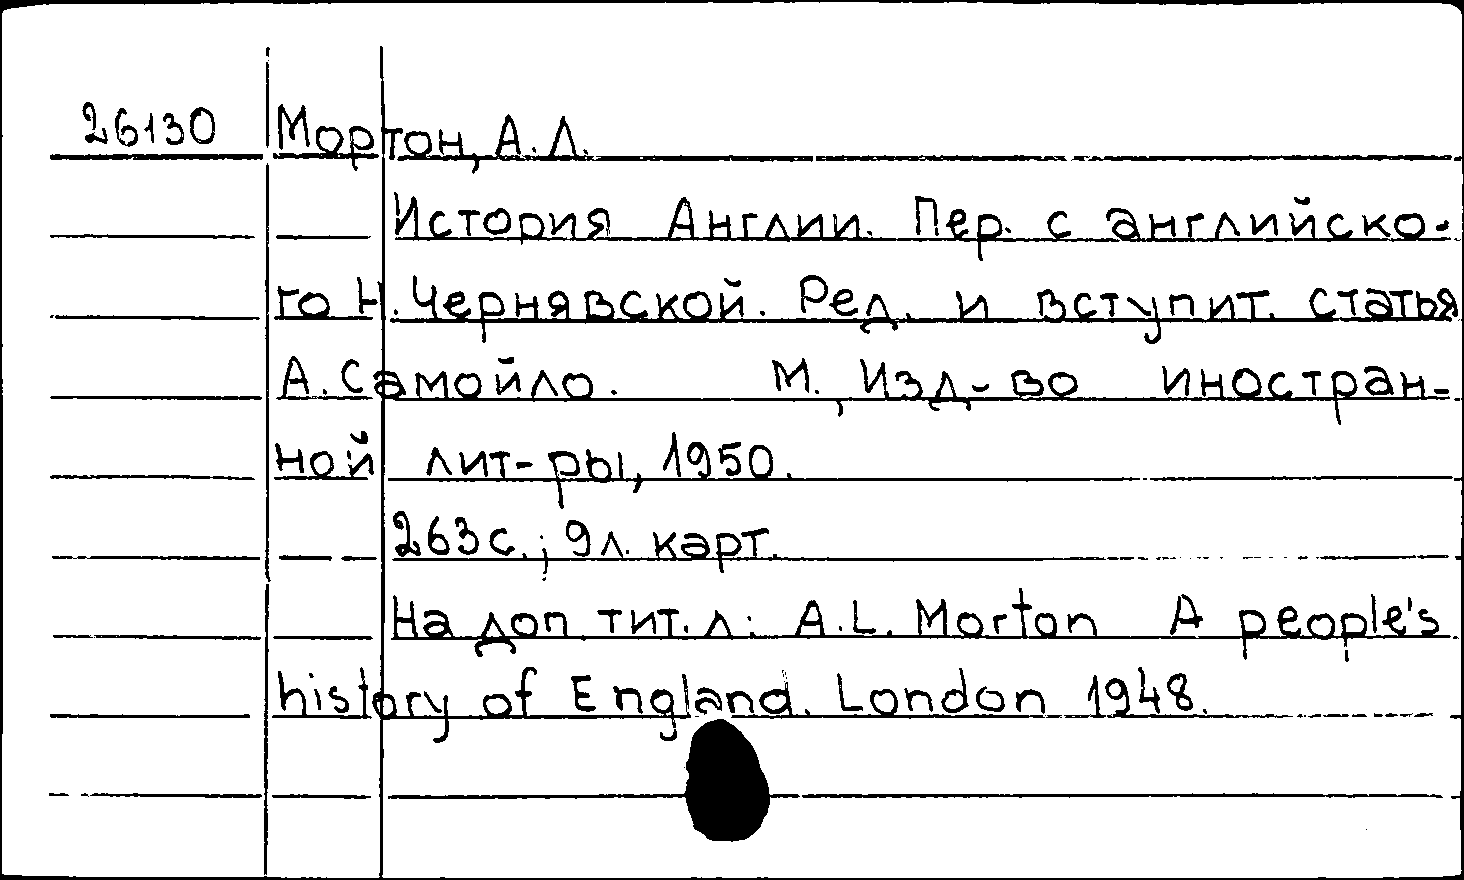 26130 Мортон, А.Л.
История Англии. Пер. с английско-
го Н.Чернявской. Ред. и вступит. статья
А.Самойло. М., Изд-во иностран-
ной лит-ры, 1950.
263с.; 9л. карт.
На доп. тит. л.: A.L. Morton A people's
history of England. London 1948.